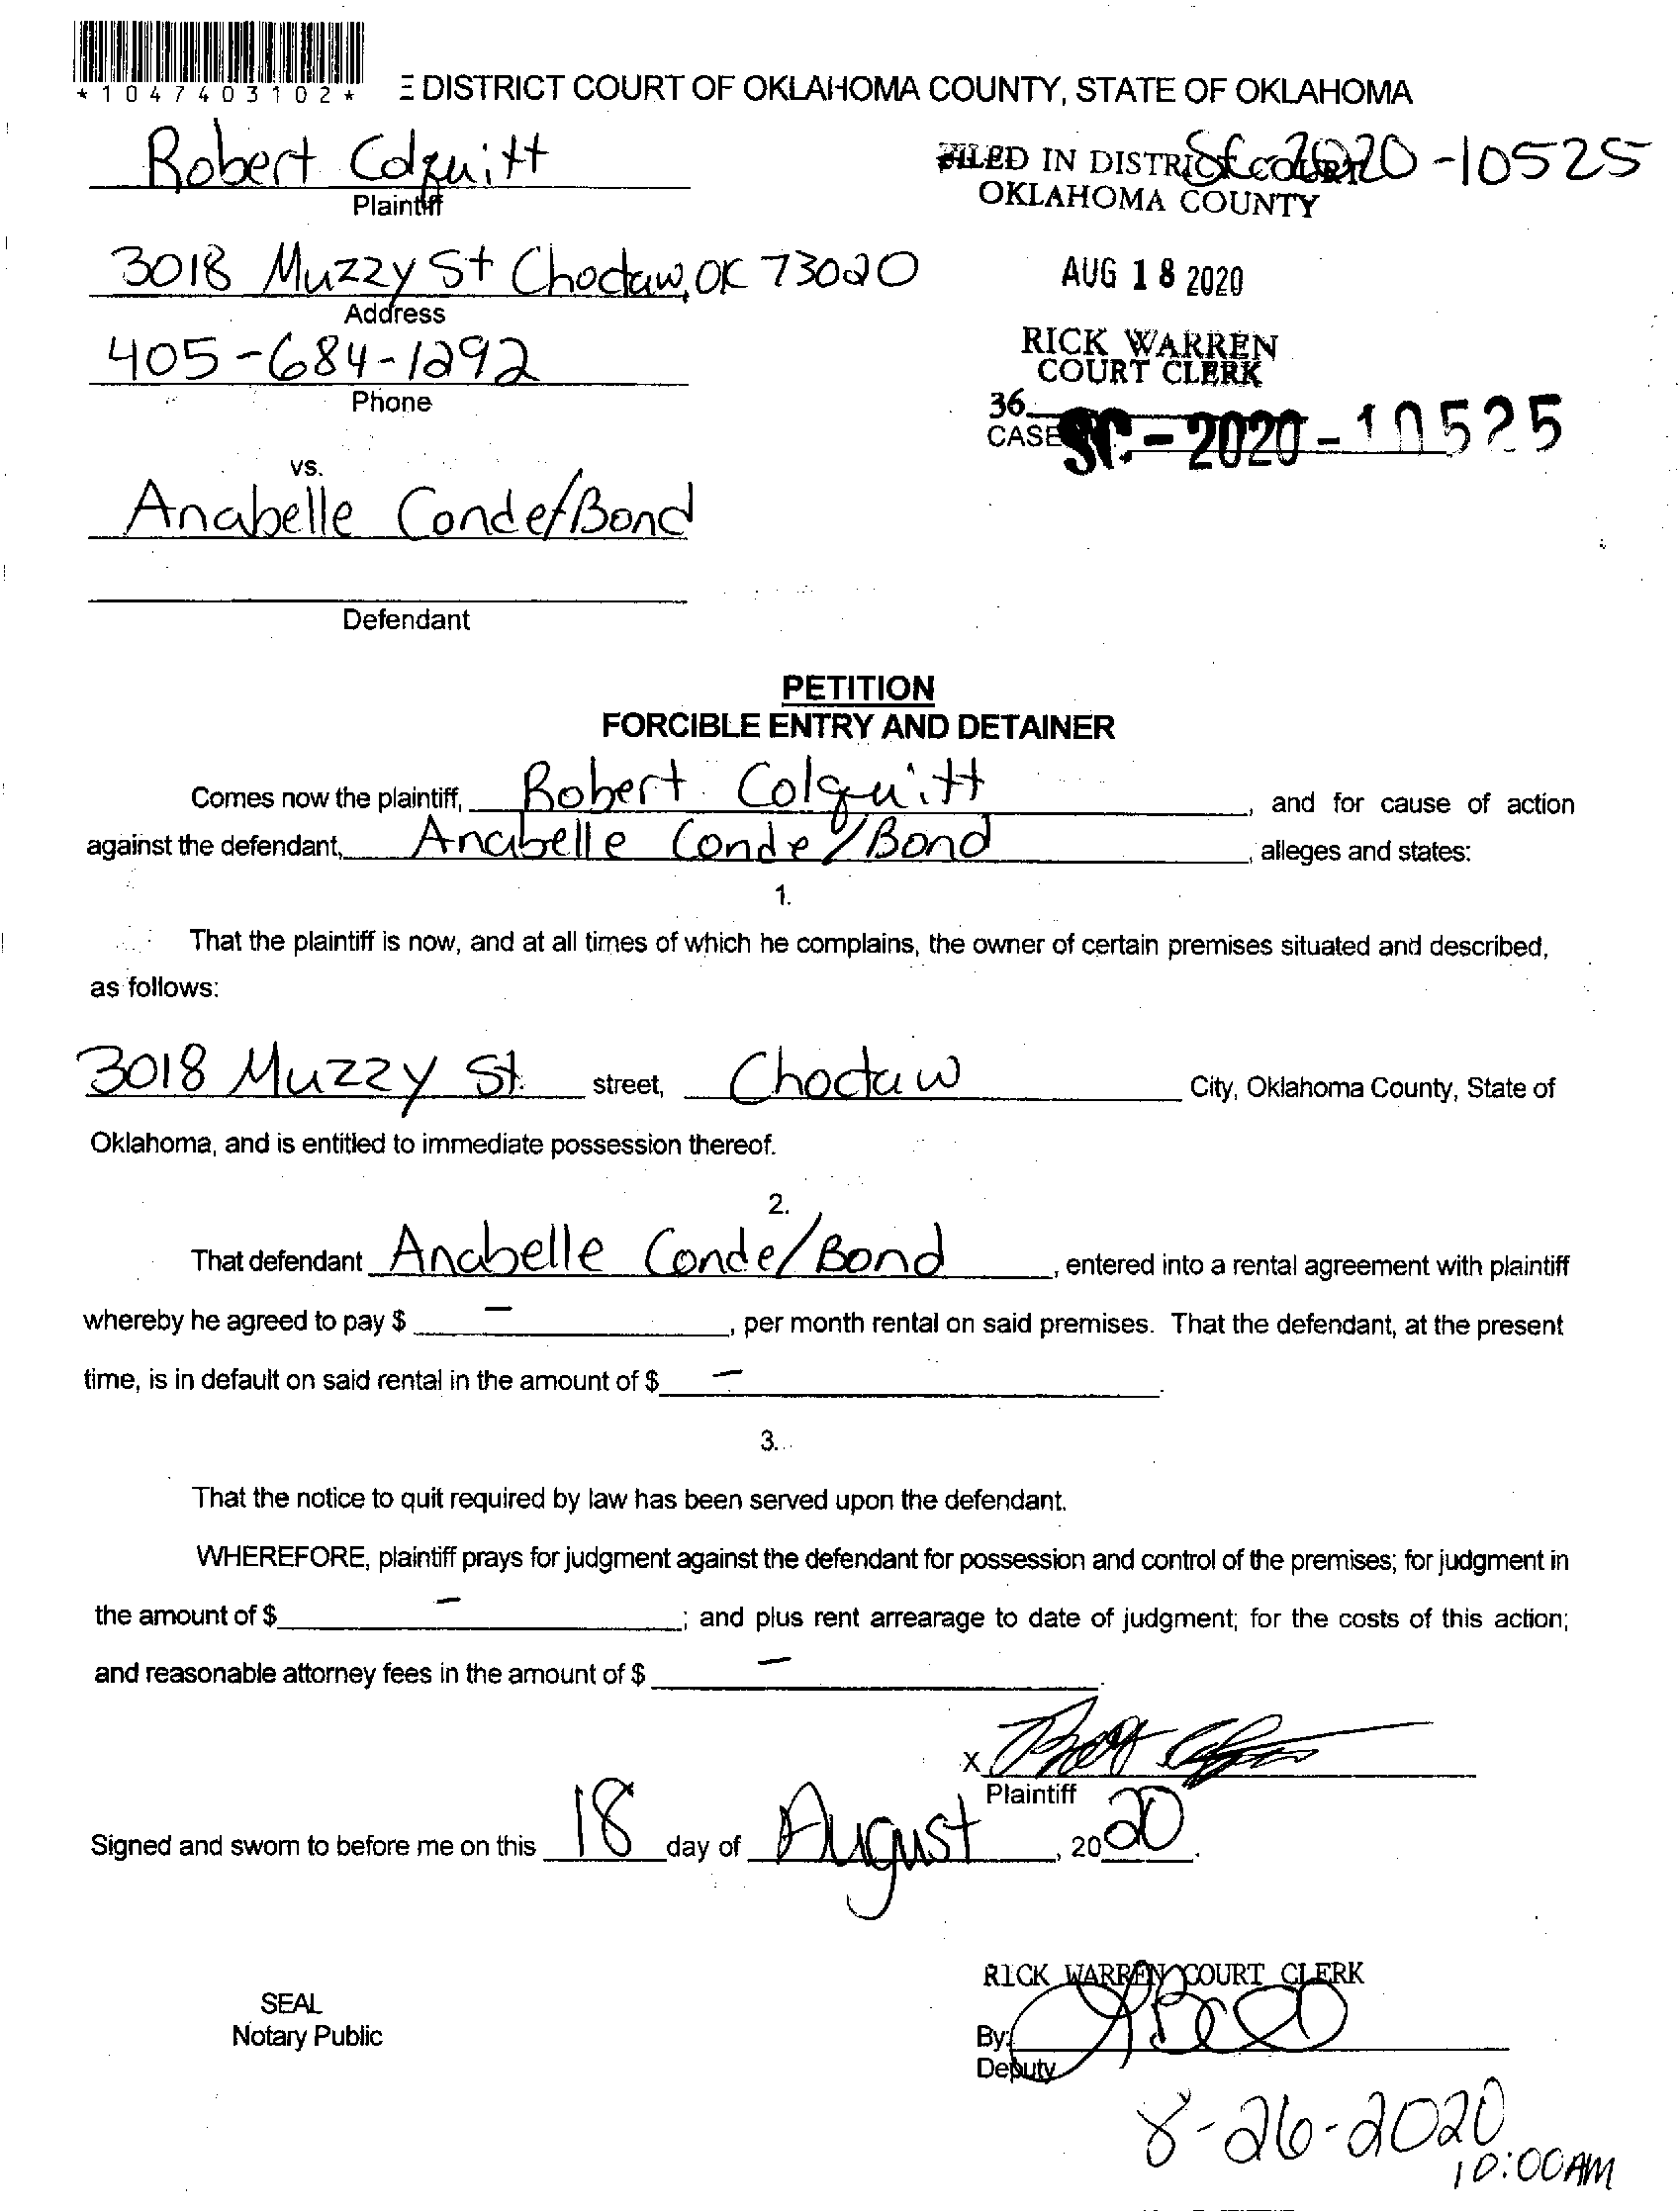 *1047403102*
E DISTRICT COURT OF OKLAHOMA COUNTY, STATE OF OKLAHOMA
Robert Colquitt
Plaintiff
FILED IN DISTRICT COURT
SC-2020-10525
OKLAHOMA COUNTY
3018 Muzzy St Choctaw, OK 73020
Address
AUG 18 2020
405-684-1292
Phone
RICK WARREN
COURT CLERK
36
CASE SC-2020-10525
vs.
Anabelle Conde/Bond
Defendant
PETITION
FORCIBLE ENTRY AND DETAINER
Comes now the plaintiff, Robert Colquitt, and for cause of action
against the defendant, Anabelle Conde/Bond, alleges and states:
1.
That the plaintiff is now, and at all times of which he complains, the owner of certain premises situated and described,
as follows:
3018 Muzzy St. street, Choctaw City, Oklahoma County, State of
Oklahoma, and is entitled to immediate possession thereof.
2.
That defendant Anabelle Conde/Bond, entered into a rental agreement with plaintiff
whereby he agreed to pay $ -, per month rental on said premises. That the defendant, at the present
time, is in default on said rental in the amount of $ -.
3.
That the notice to quit required by law has been served upon the defendant.
WHEREFORE, plaintiff prays for judgment against the defendant for possession and control of the premises; for judgment in
the amount of $ -; and plus rent arrearage to date of judgment; for the costs of this action;
and reasonable attorney fees in the amount of $ -.
X
Plaintiff
Signed and sworn to before me on this 18 day of August, 2020.
RICK WARREN COURT CLERK
SEAL
Notary Public
By:
Deputy
8-26-2020
10:00AM